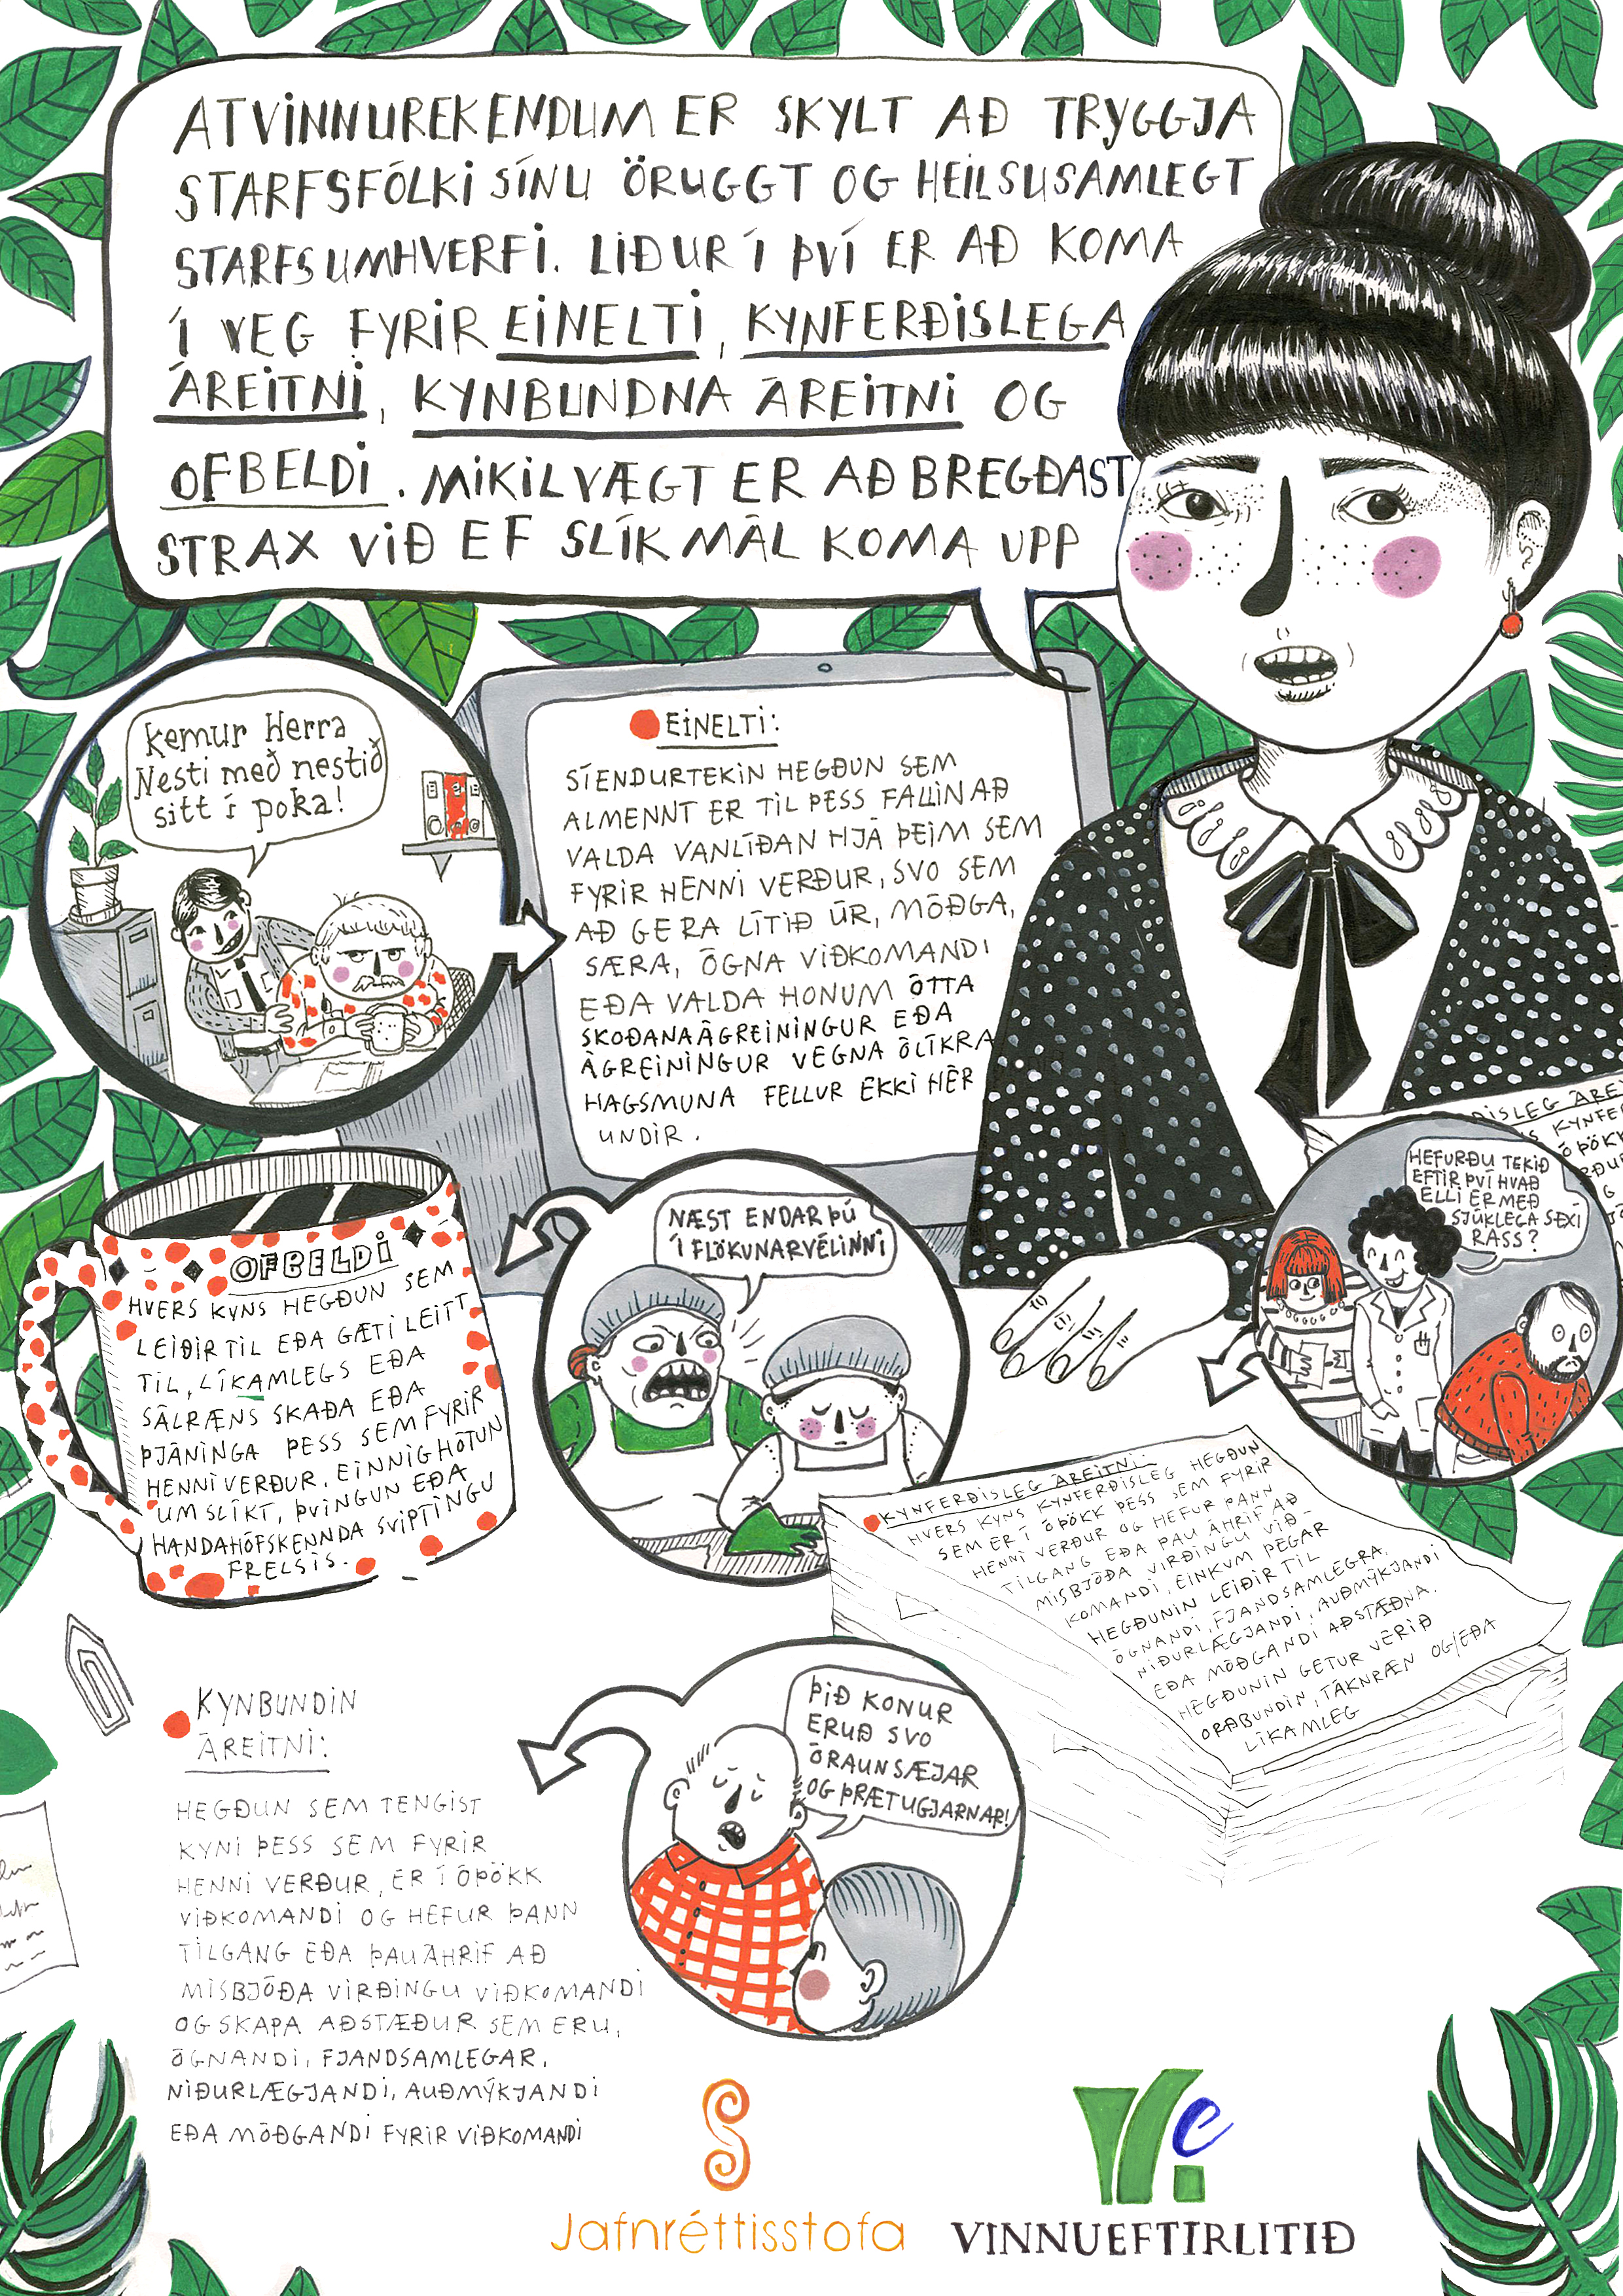 ATVINNUREKENDUM ER SKYLT AÐ TRYGGJA
STARFSFÓLKI SÍNU ÖRUGGT OG HEILSUSAMLEGT
STARFSUMHVERFI. LIÐUR Í ÞVÍ ER AÐ KOMA
Í VEG FYRIR EINELTI, KYNFERÐISLEGA
ÁREITNI, KYNBUNDNA ÁREITNI OG
OFBELDI. MIKILVÆGT ER AÐ BREGÐAST
STRAX VIÐ EF SLÍK MÁL KOMA UPP
Kemur Herra
Nesti með nestið
sitt í poka!
EINELTI:
SÍENDURTEKIN HEGÐUN SEM
ALMENNT ER TIL ÞESS FALLIN AÐ
VALDA VANLÍÐAN HJÁ ÞEIM SEM
FYRIR HENNI VERÐUR, SVO SEM
AÐ GERA LÍTIÐ ÚR, MÓÐGA,
SÆRA, ÓGNA VIÐKOMANDI
EÐA VALDA HONUM ÓTTA
SKOÐANAÁGREININGUR EÐA
ÁGREININGUR VEGNA ÓLÍKRA
HAGSMUNA FELLUR EKKI HÉR
UNDIR.
HEFURÐU TEKIÐ
EFTIR ÞVÍ HVAÐ
ELLI ER MEÐ
SJÚKLEGA SEXÍ
RASS?
NÆST ENDAR ÞÚ
Í FLÖKUNARVÉLINNI
OFBELDI
HVERS KYNS HEGÐUN SEM
LEIÐIR TIL EÐA GÆTI LEITT
TIL, LÍKAMLEGS EÐA
SÁLRÆNS SKAÐA EÐA
ÞJÁNINGA ÞESS SEM FYRIR
HENNI VERÐUR. EINNIG HÓTUN
UM SLÍKT, ÞVINGUN EÐA
HANDAHÓFSKENNDA SVIPTINGU
FRELSIS.
KYNFERÐISLEG ÁREITNI:
HVERS KYNS KYNFERÐISLEG HEGÐUN
SEM ER Í ÓÞÖKK ÞESS SEM FYRIR
HENNI VERÐUR OG HEFUR ÞANN
TILGANG EÐA ÞAU ÁHRIF AÐ
MISBJÓÐA VIRÐINGU VIÐ-
KOMANDI, EINKUM ÞEGAR
HEGÐUNIN LEIÐIR TIL
ÓGNANDI, FJANDSAMLEGRA,
NIÐURLÆGJANDI, AUÐMÝKJANDI
EÐA MÓÐGANDI AÐSTÆÐNA.
HEGÐUNIN GETUR VERIÐ
ORÐBUNDIN, TÁKNRÆN OG/EÐA
LÍKAMLEG
ÞIÐ KONUR
ERUÐ SVO
ÓRAUNSÆJAR
OG ÞRÆTUGJARNAR!
KYNBUNDIN
ÁREITNI:
HEGÐUN SEM TENGIST
KYNI ÞESS SEM FYRIR
HENNI VERÐUR, ER Í ÓÞÖKK
VIÐKOMANDI OG HEFUR ÞANN
TILGANG EÐA ÞAU ÁHRIF AÐ
MISBJÓÐA VIRÐINGU VIÐKOMANDI
OG SKAPA AÐSTÆÐUR SEM ERU,
ÓGNANDI, FJANDSAMLEGAR,
NIÐURLÆGJANDI, AUÐMÝKJANDI
EÐA MÓÐGANDI FYRIR VIÐKOMANDI
Jafnréttisstofa
VINNUEFTIRLITIÐ